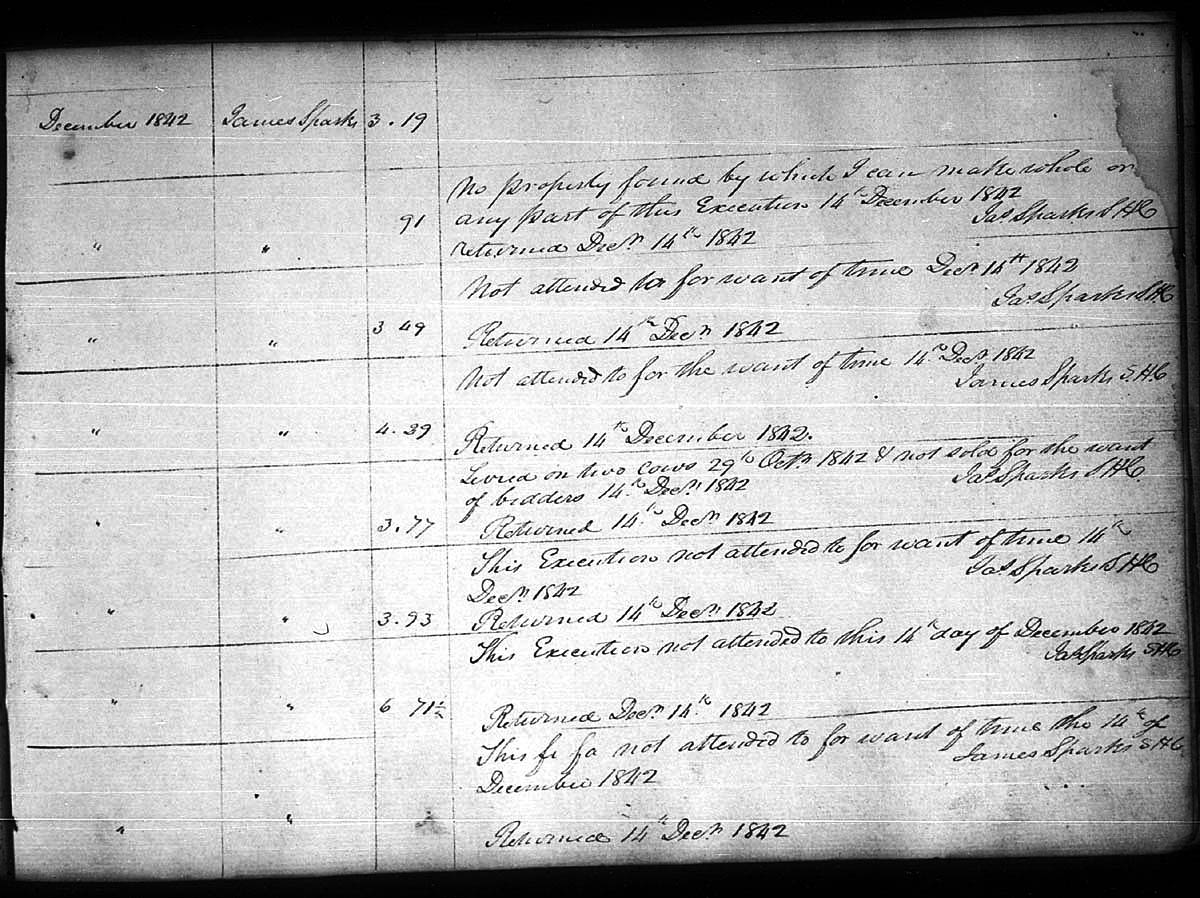 December 1842 James Sparks 3.19
No property found by which I can make whole or
91 any part of this Execution 14th December 1842
Jas Sparks S.H.C
" " returned Decr 14th 1842
Not attended to for want of time Decr 14th 1842
Jas Sparks S.H.C
3 49
" " Returned 14th Decr 1842
Not attended to for the want of time 14th Decr 1842
James Sparks S.H.C
" " 4.39 Returned 14th December 1842.
Levied on two cows 29th Octr 1842 & not sold for the want
of bidders 14th Decr 1842 Jas Sparks S.H.C.
" " 3.77 Returned 14th Decr 1842
This Execution not attended to for want of time 14th
Decr 1842 Jas Sparks S.H.C
" " 3.93 Returned 14th Decr 1842
This Execution not attended to this 14th day of December 1842
Jas Sparks S.H.C
" " 6 71½ Returned Decr 14th 1842
This fi fa not attended to for want of time the 14th of
December 1842 James Sparks S.H.C
" " Returned 14th Decr 1842